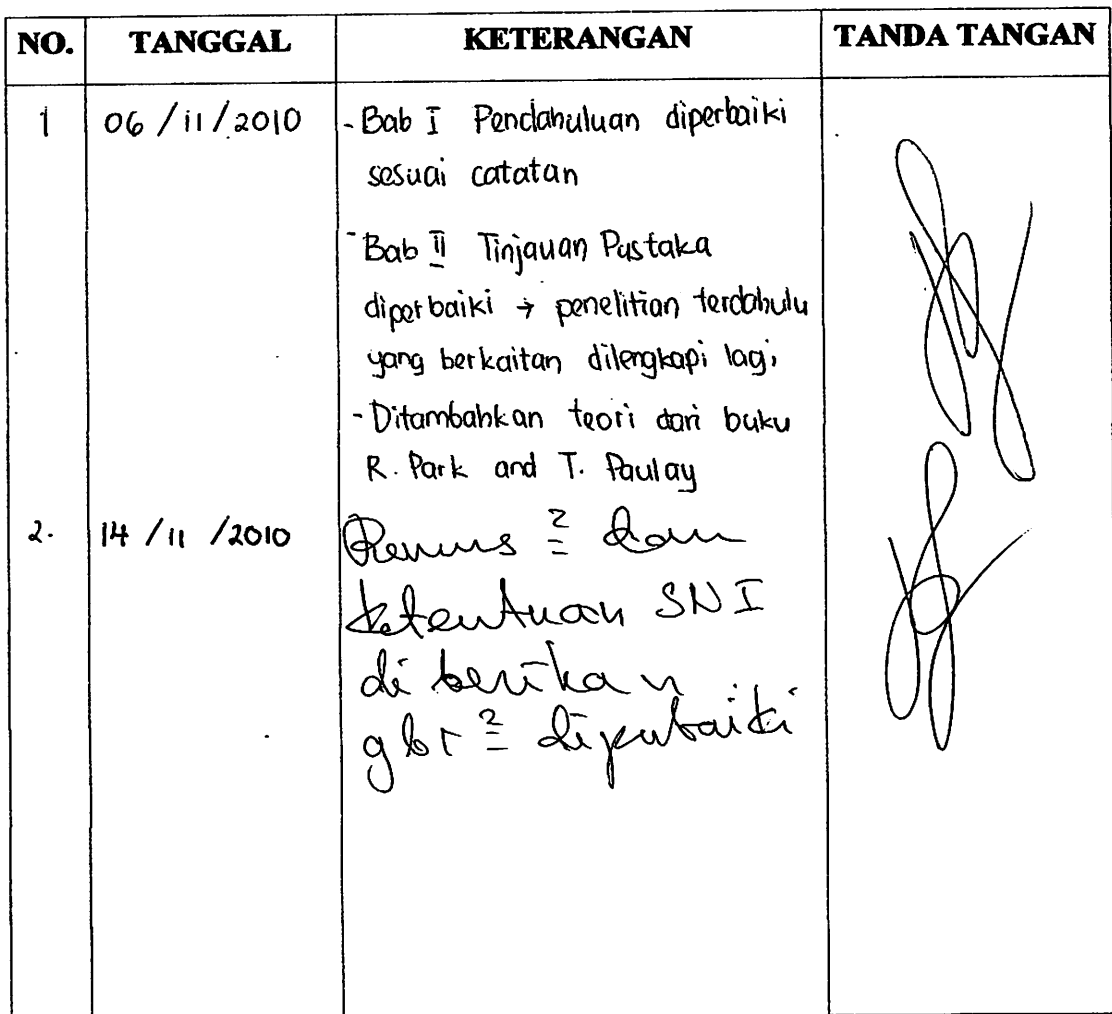 NO. TANGGAL KETERANGAN TANDA TANGAN
1 06/11/2010 - Bab I Pendahuluan diperbaiki
sesuai catatan
- Bab II Tinjauan Pustaka
diperbaiki → penelitian terdahulu
yang berkaitan dilengkapi lagi
- Ditambahkan teori dari buku
R. Park and T. Paulay
2. 14/11/2010 Rumus ² dan
ketentuan SNI
di berikan
gbr ² diperbaiki